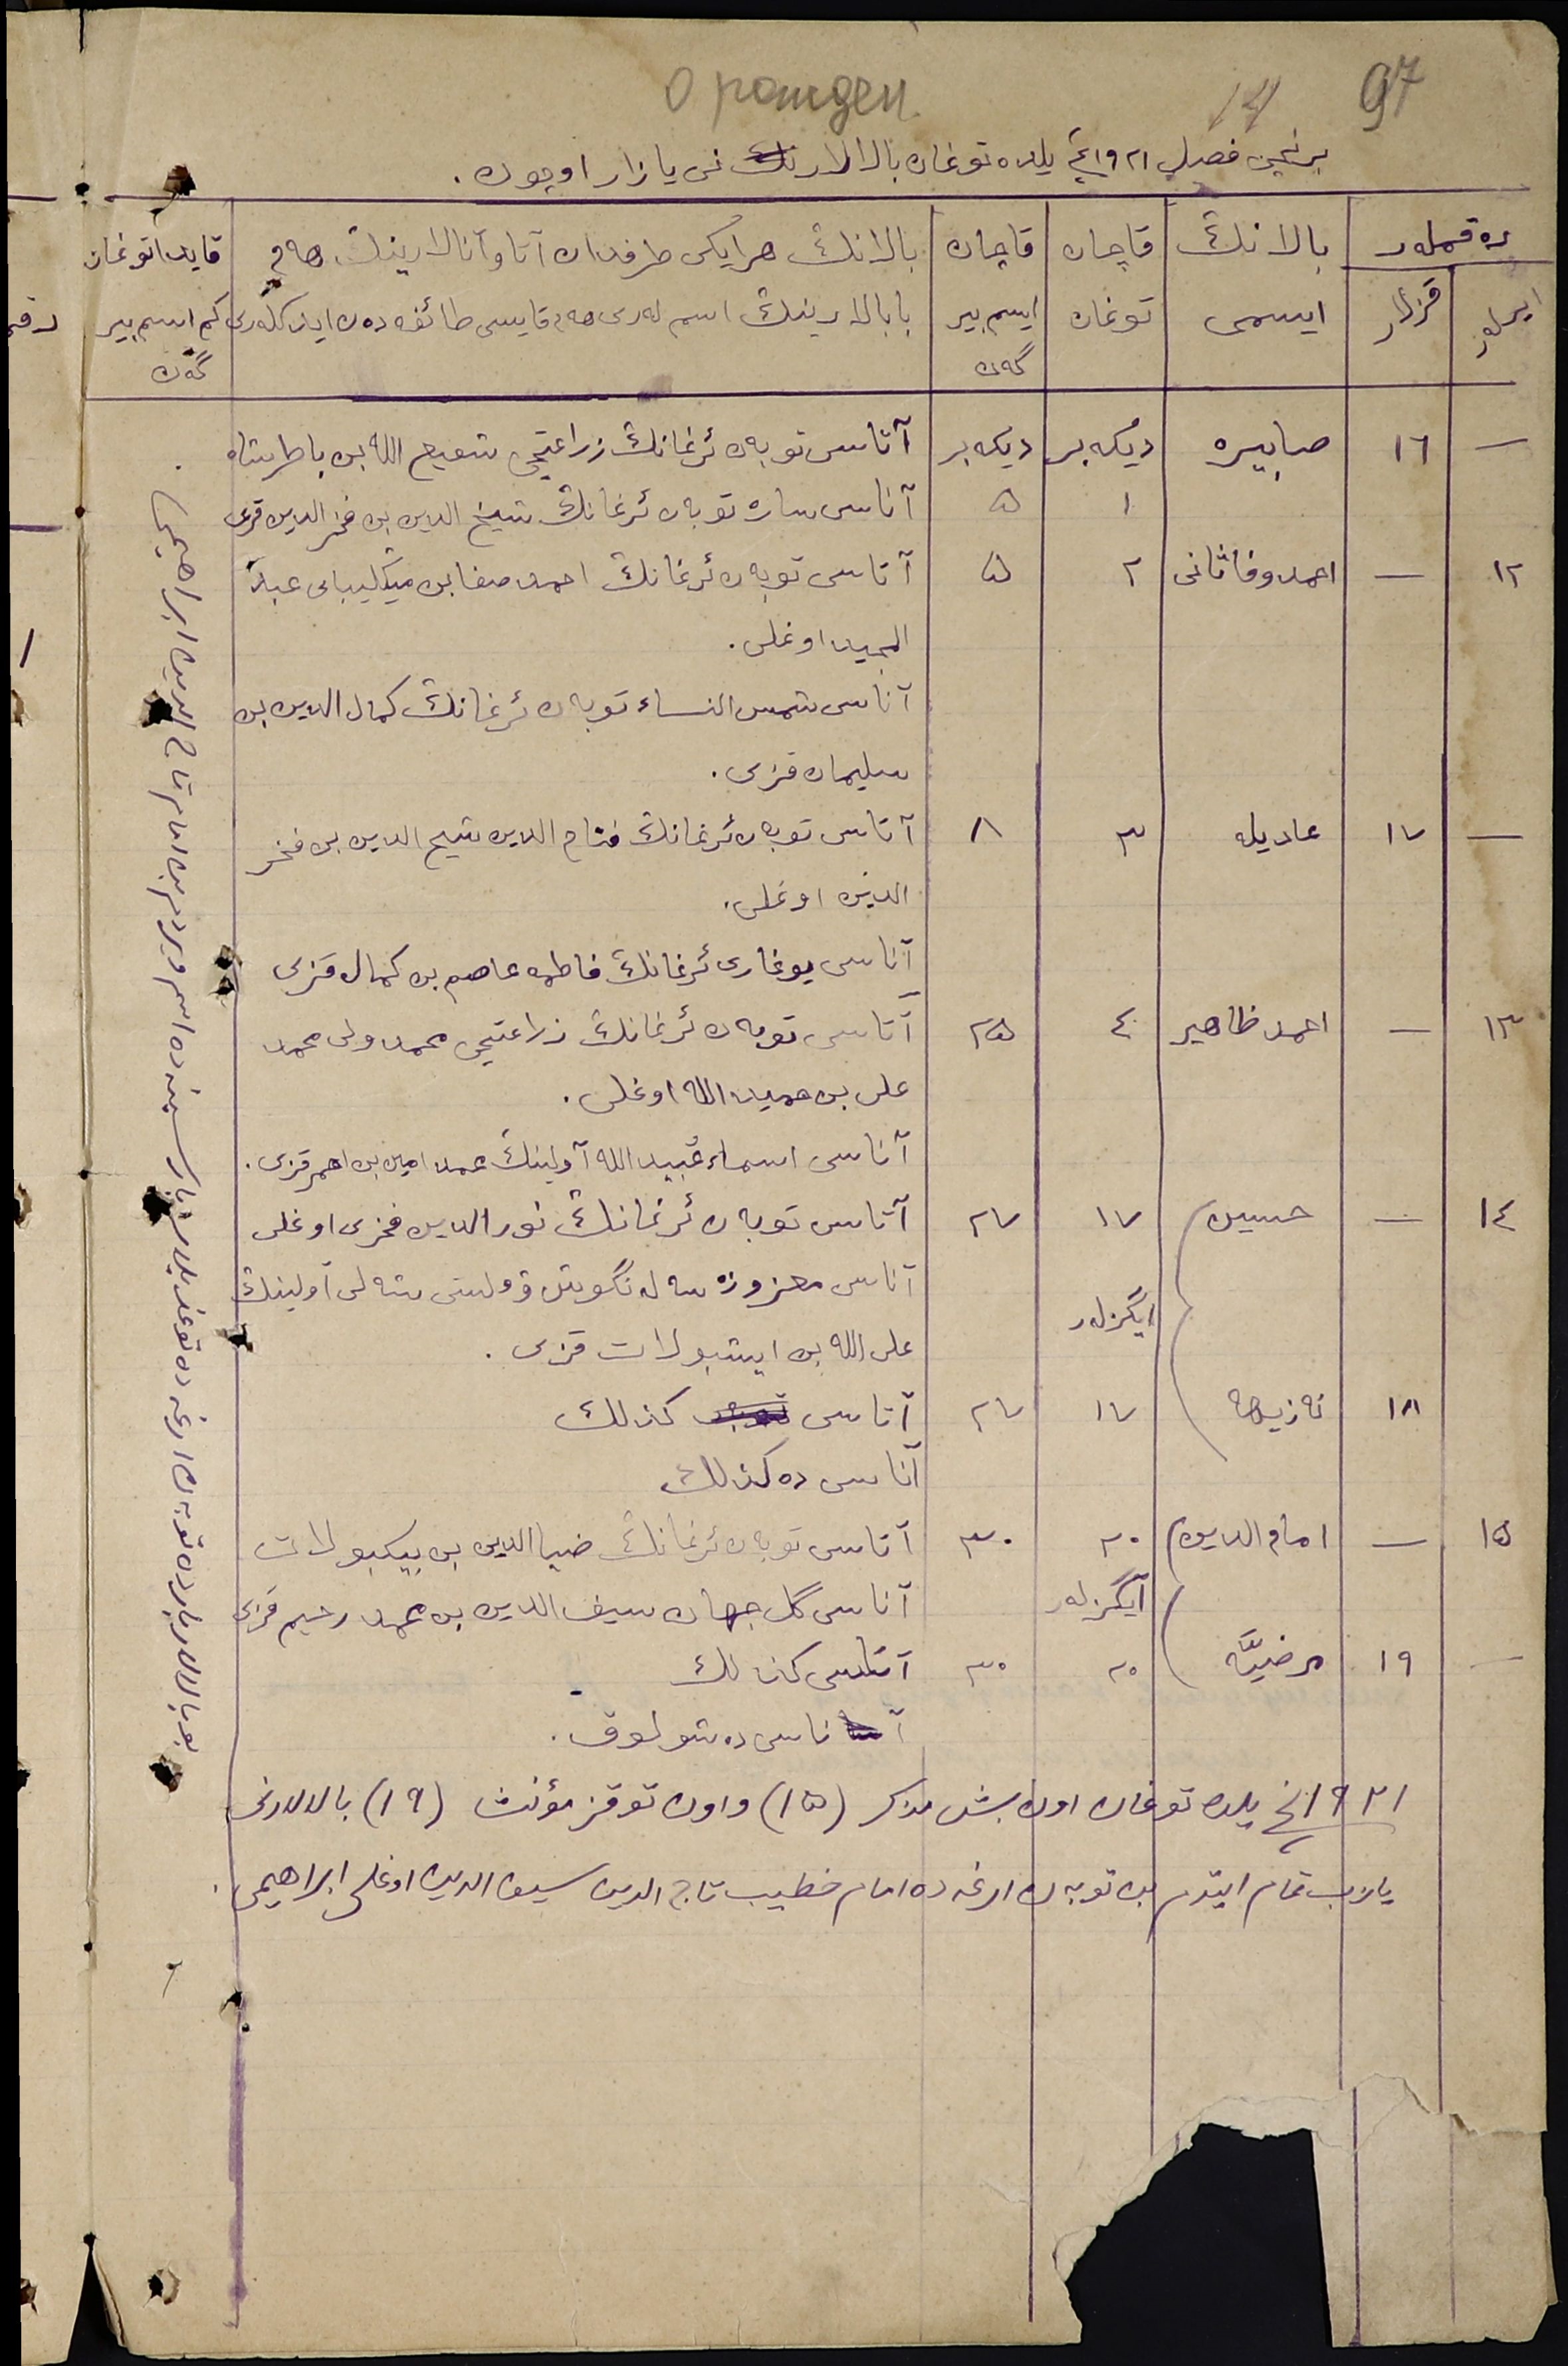 О рожден
97
14
برنچی فصیل ۱۹۲۱نچی یلده توغان بالالارنی یازار اوچون.
ره قمله‌ر
ایرلەر
قزلار
بالانڭ ایسمی
قاچان توغان
قاچان ایسم بیرگەن
بالانڭ هر ایکی طرفدان آتا و آنالارینڭ هەم
بابالارینڭ اسم لەری هەم قایسی طائفەدەن ایدیکلەری
قایدا توغان
کم اسم بیر
گەن
— ۱٦ صابیره دیکەبر ۱ دیکەبر ۵ آتاسی توبەن ئرغانڭ زراعتچی شفیع الله بن باطرشاه
آناسی ساره توبەن ئرغانڭ شیخ الدین بن فخرالدین قزی
۱۲ — احمدوفا ثانی ۲ ۵ آتاسی توبەن ئرغانڭ احمدصفا بن میڭلیبای عبد
المجید اوغلی.
آناسی شمس النساء توبەن ئرغانڭ کمال الدین بن
سلیمان قزی.
— ۱۷ عادیله ۳ ۸ آتاسی توبەن ئرغانڭ فتاح الدین شیخ الدین بن فخر
الدین اوغلی.
آناسی یوغاری ئرغانڭ فاطمه عاصم بن کمال قزی
۱۳ — احمد ظاهیر ٤ ۲۵ آتاسی توبەن ئرغانڭ زراعتچی محمدولی محمد
علی بن حمیدالله اوغلی.
آناسی اسماء عبیدالله آولینڭ محمد امین بن احمر قزی.
۱٤ — حسین ۱۷ ۲۷ آتاسی توبەن ئرغانڭ نورالدین فخری اوغلی
ایگزلەر
آناسی معزوزه
علی الله بن ایشبولات قزی.
۱۸ نەزیهه ۱۷ ۲۷ آتاسی کذلك
آناسی ده کذلك
۱۵ — امام الدین ۲۰ ۳۰ آتاسی توبەن ئرغانڭ ضیاالدین بن بیکبولات
ایگزلەر
آناسی گل جهان سیف الدین بن محمد رحیم قزی
— ۱۹ مرضیّه ۲۰ ۳۰ آتاسی کذلك
آناسی ده شولوق.
۱۹۲۱نچی یلده توغان اون بش مذکر (۱۵) و اون توقز مؤنث (۱۹) بالالارنی
یازب تمام ایتدم من توبەن ارغەده امام خطیب تاج الدین سیف الدین اوغلی ابراهیمی.